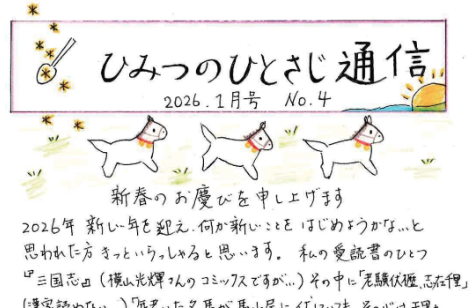 ひみつのひとさじ通信
2026.1月号 No.4
新春のお慶びを申し上げます
2026年 新しい年を迎え、何か新しいことを はじめようかな…と
思われた方 きっといらっしゃると思います。 私の愛読書のひとつ
『三国志』(横山光輝さんのコミックスですが…) その中に「老驥伏櫪、志在千里」